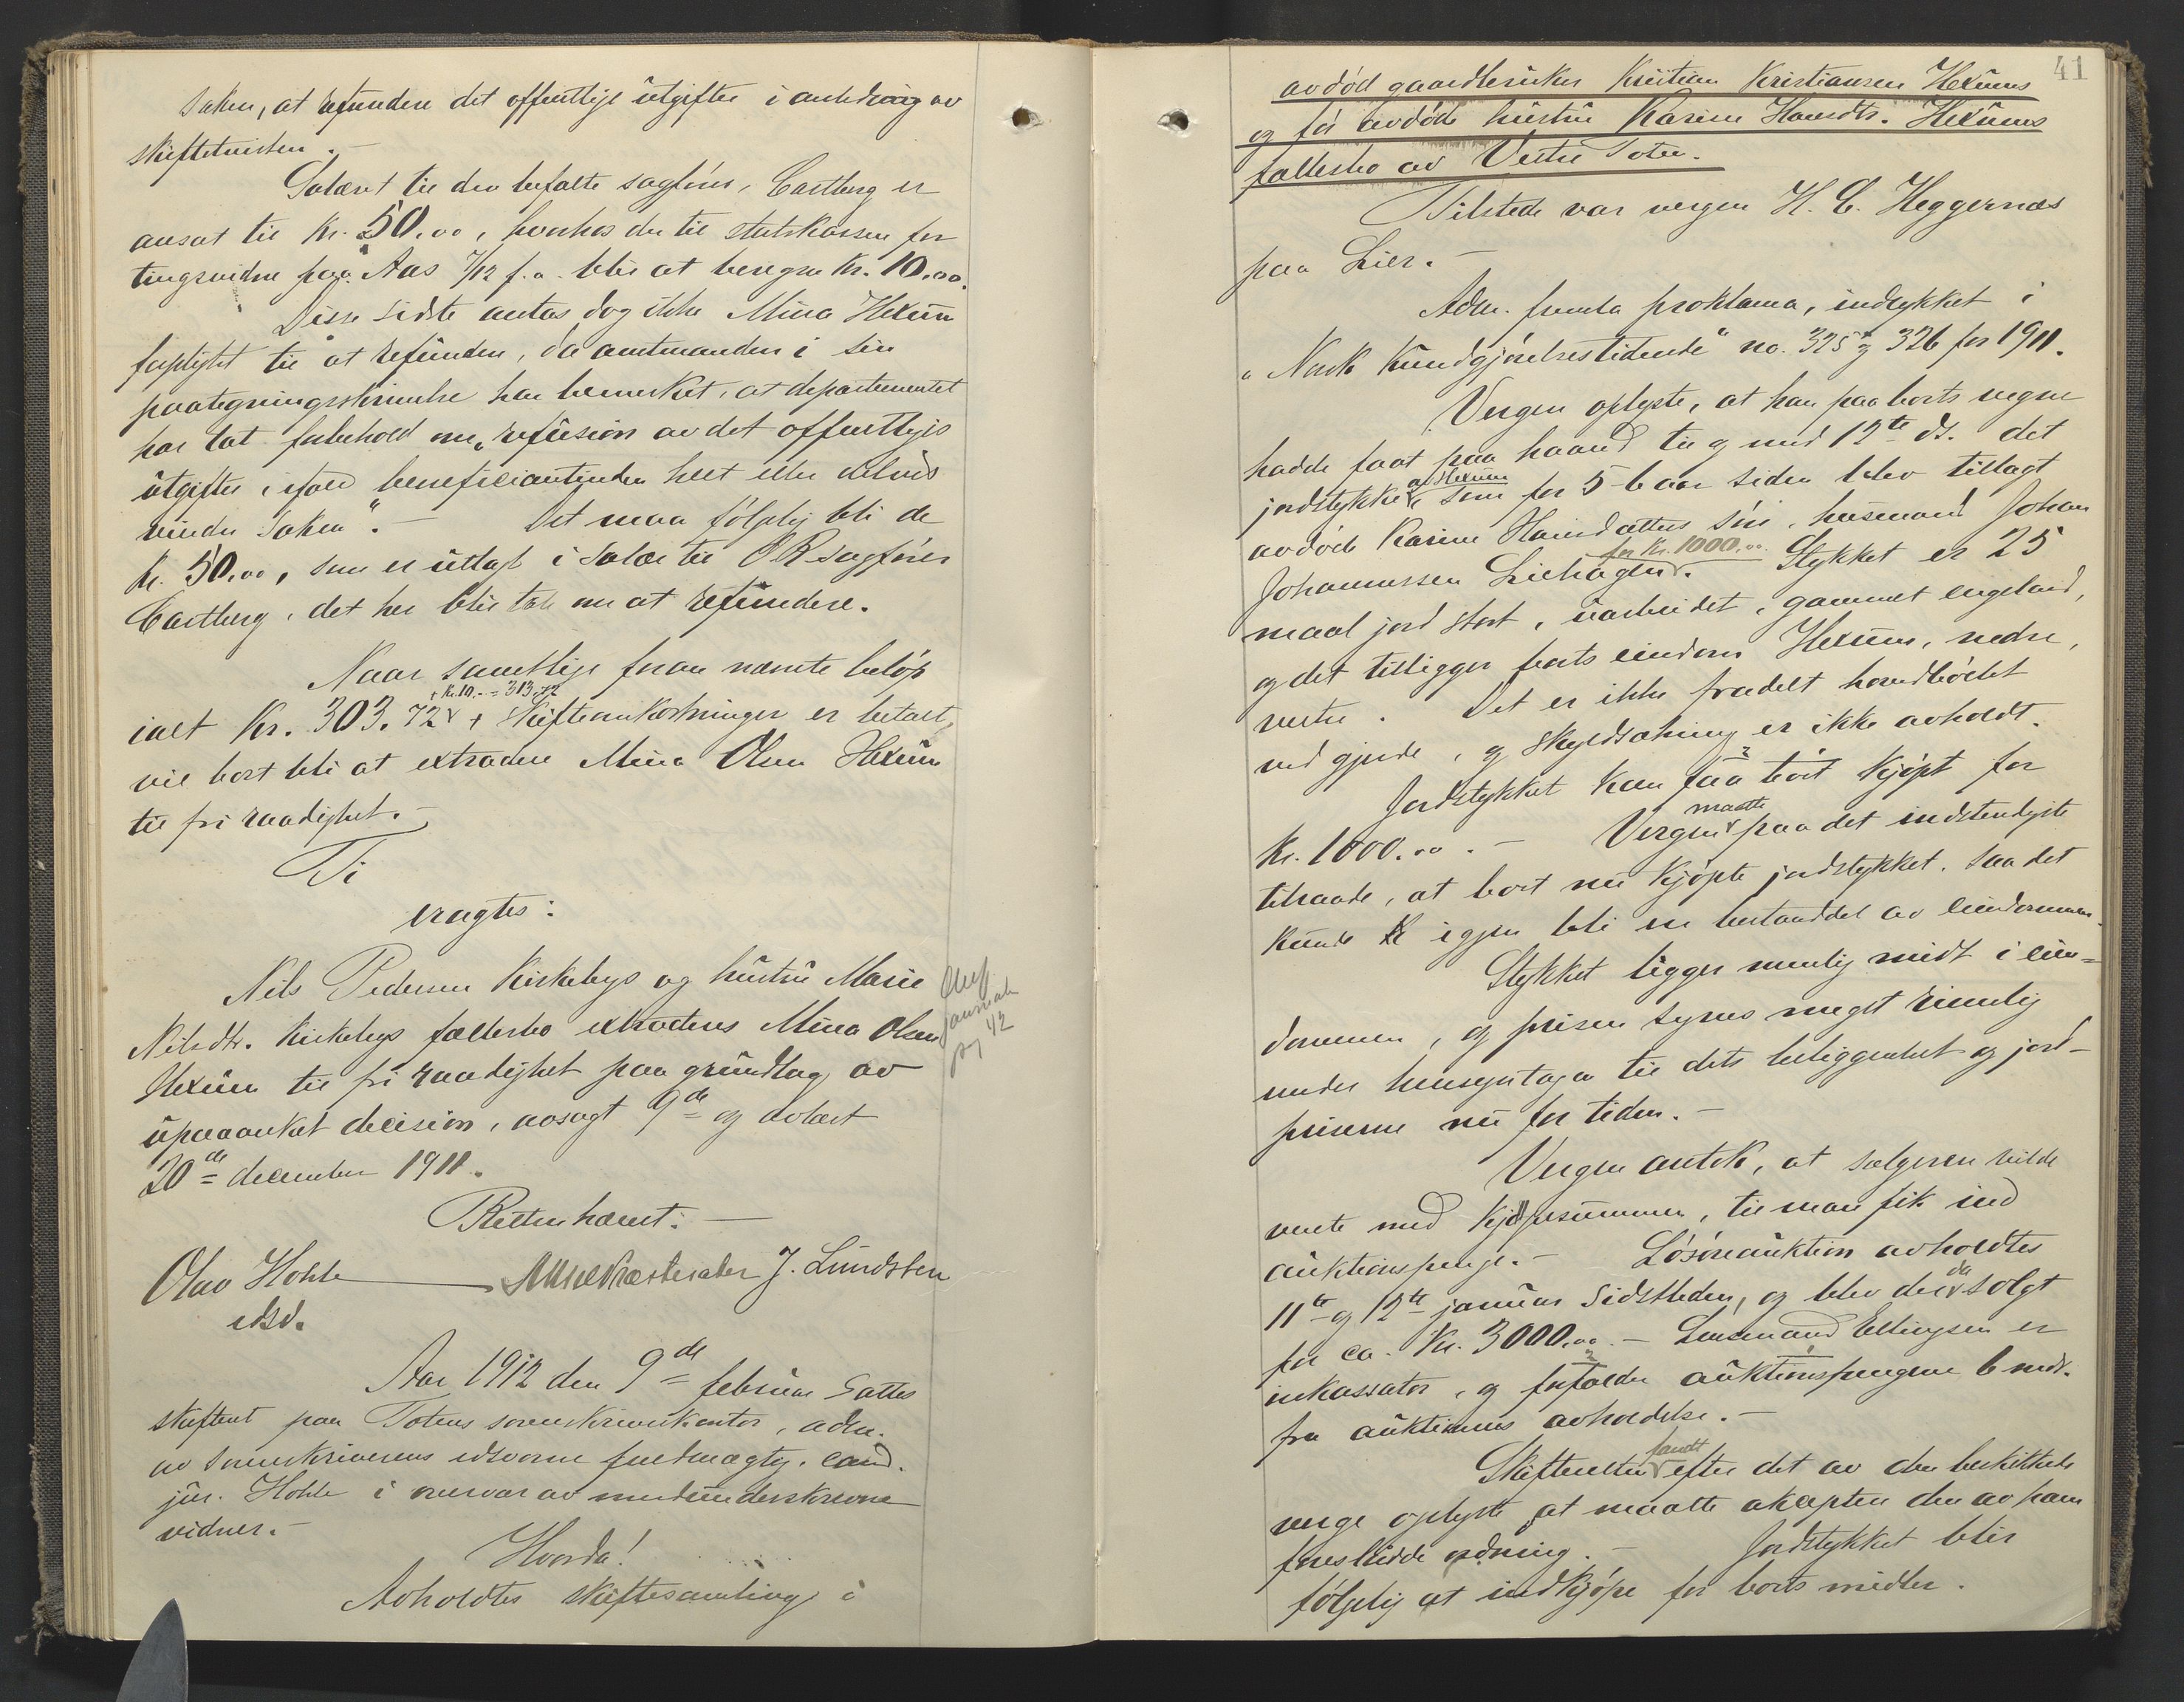 saken, at refundere det offentlige utgifter i anledning av
skiftetvisten.-
Salæret til den befalte sagfører, Castberg er
ansat til kr. 50.00, hvorhos der til statskassen for
tingsvidne paa Aas 7/12 f.a. blir at beregne kr. 10.00.
Disse sidste antas dog ikke Mina Hexum
forpligtet til at refundere, da amtmanden i sin
paategningsskrivelse har bemerket, at departementet
har tat forbehold om "refusion av det offentliges
utgifter, ifald beneficiantinden helt eller delvis
vinder saken".- Det maa følgelig bli de
kr. 50.00, som er utlagt i salær til ORsagfører
Castberg, det her blir tale om at refundere.
Naar samtlige foran nævnte beløp
+ kr. 10.- = 313.72
ialt Kr. 303.72 + skifteomkostninger er betalt,
vil boet bli at extradere Mina Olsen Hexum
til fri raadighet.-
Ti
eragtes:
Nils Pedersen Kirkebys og hustru Marie
Nilsdtr. Kirkebys fællesbo extraderes Mina Olsen
Hexum til fri raadighet paa grundlag av
upaaanket decision, avsagt 9de og avlæst
20de december 1911.
journal
pg 42
Retten hævet:-
Olav Hohle J. Lundsten
edsv.
Aar 1912 den 9de februar sattes
skifteret paa Totens sorenskriverkontor, adm.
av sorenskriverens edsvorne fuldmægtig, cand.
jur. Hohle i overvær av medunderskrevne
vidner.-
Hvorda!
Avholdtes skiftesamling i
41
avdød gaardbruker Kristian Kristiansen Hexums
og før avdøde hustru Karine Hansdtr. Hexums
fællesbo av Vestre Toten.
Tilstede var vergen H. C. Heggernæs
paa Lier.-
Adm. fremla proklama, indrykket i
"Norsk Kundgjørelsestidende" no. 325 og 326 for 1911.
Vergen oplyste, at han paa boets vegne
hadde faat paa haand til og med 12te ds. det
av Hexum
jordstykke, som for 5-6 aar siden blev tillagt
avdøde Karine Hansdatters søn, husmand Johan
for kr. 1000.00.
Johannessen Liehagen. Stykket er 25
maal jord stort, uarbeidet, gammelt engeland,
og det tilligger boets eiendom Hexum, nedre,
vestre. Det er ikke fradelt hovedbølet
ved gjerde, og skyldsætning er ikke avholdt.
Jordstykket kan faa boet kjøpt for
maatte
Kr. 1000.00.- Vergen paa det indstendigste
tilraade, at boet nu kjøpte jordstykket, saa det
kunde igjen bli en bestanddel av eiendommen.
Stykket ligger nemlig midt i eien=
dommen, og prisen synes meget rimelig
under hensyntagen til dets beliggenhet og jord-
priserne nu for tiden.-
Vergen antok, at sælgeren vilde
vente med kjøpesummen, til man fik ind
auktionspenge.- Løsøreauktion avholdtes
da
11te og 12te januar sidstleden, og blev der solgt
for ca. Kr. 3000.00.- Lensmand Ellingsen er
inkassator, og forfalder auktionspengene 6 mdr.
fra auktionens avholdelse.-
fandt
Skifteretten efter det av den beskikkede
verge oplyste at maatte akceptere den av ham
foreslaaede ordning.- Jordstykket blir
følgelig at indkjøpe for boets midler.